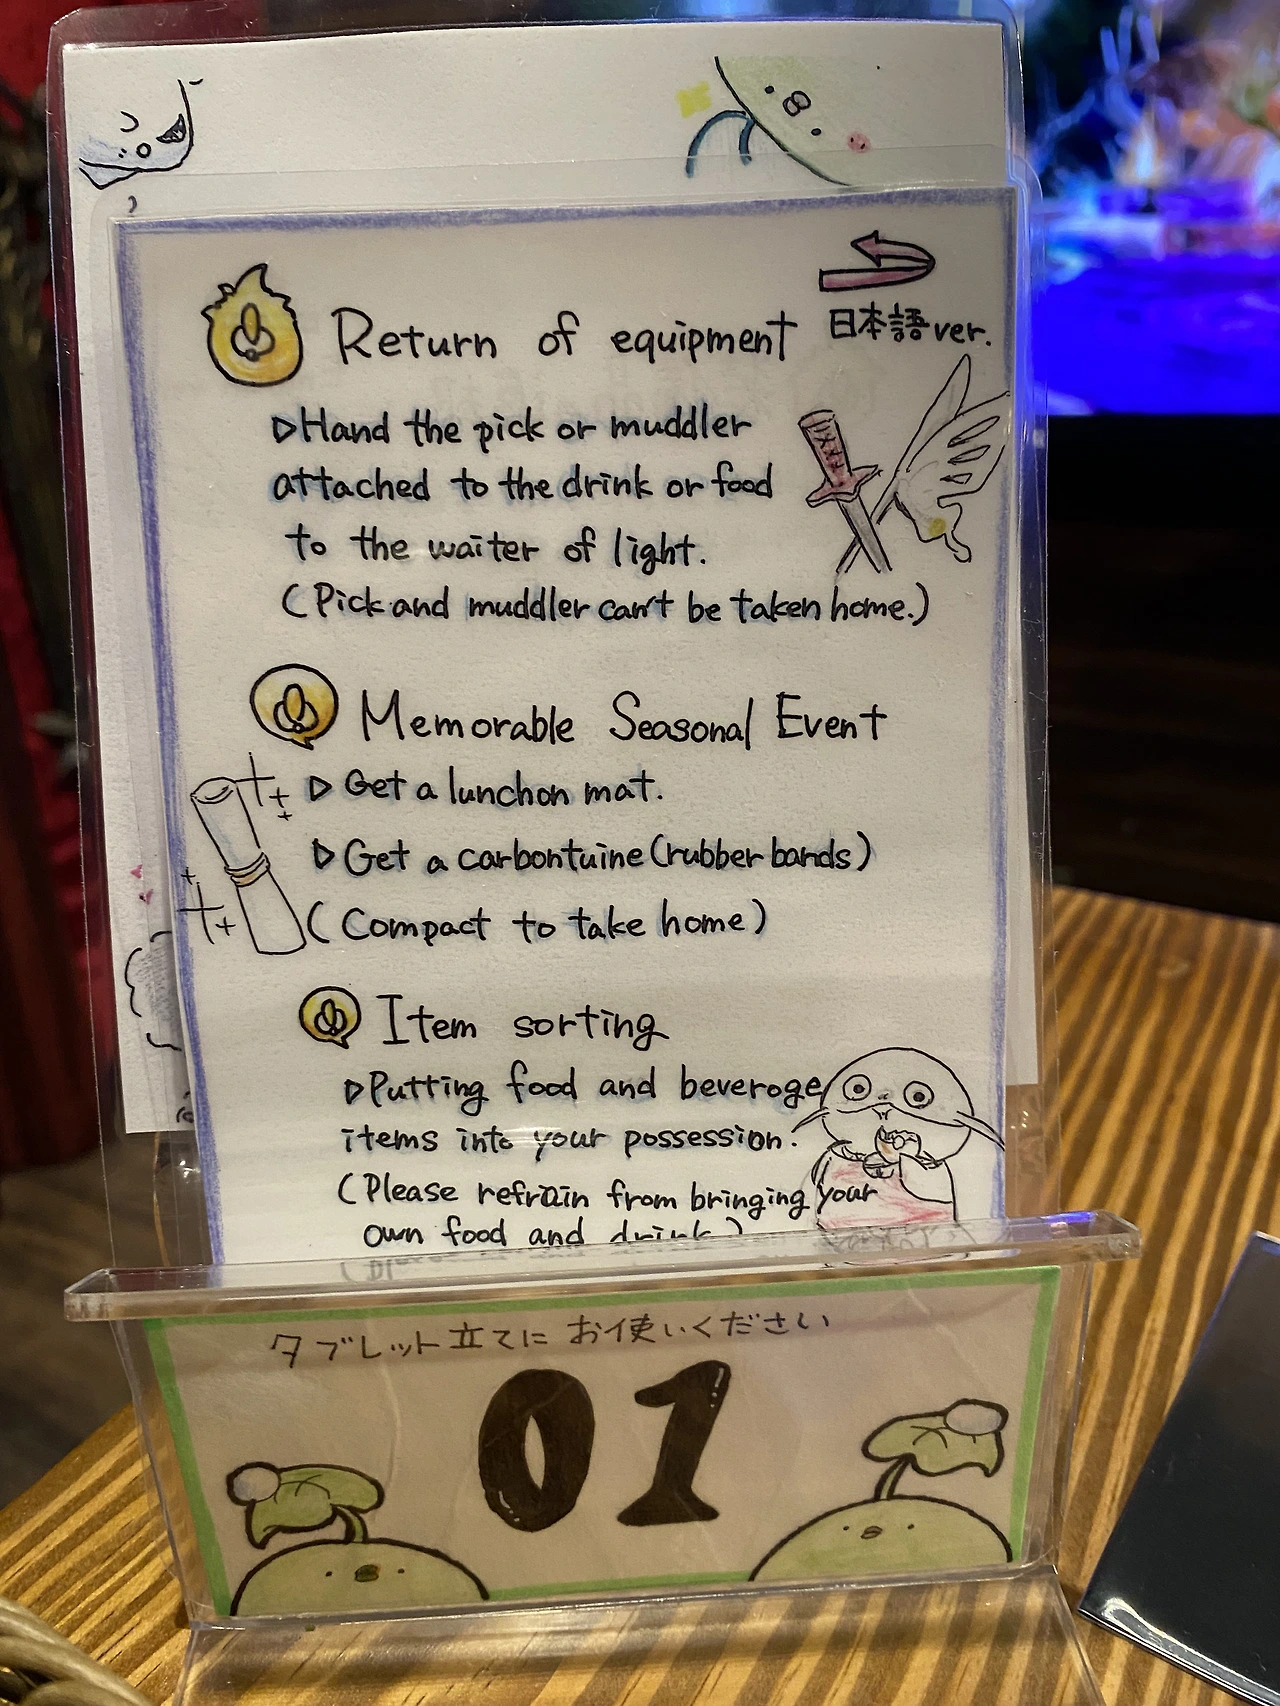 Return of equipment
日本語ver.
▷Hand the pick or muddler
attached to the drink or food
to the waiter of light.
(Pick and muddler can't be taken home.)
Memorable Seasonal Event
▷Get a lunchon mat.
▷Get a carbontuine(rubber bands)
(Compact to take home)
Item sorting
▷Putting food and beveroge
items into your possession.
(Please refrain from bringing your
own food and drink.)
タブレット立てにお使いください
01